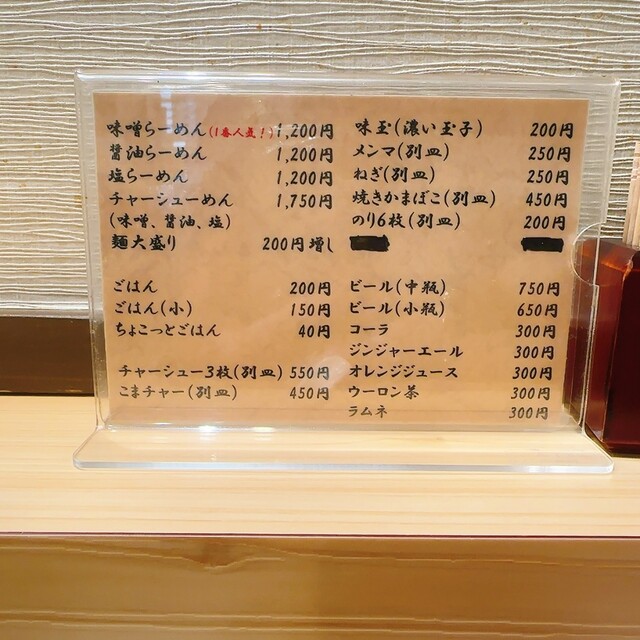 味噌らーめん(1番人気!)1,200円
醤油らーめん 1,200円
塩らーめん 1,200円
チャーシューめん 1,750円
(味噌、醤油、塩)
麺大盛り 200円増し
ごはん 200円
ごはん(小) 150円
ちょこっとごはん 40円
チャーシュー3枚(別皿) 550円
こまチャー(別皿) 450円
味玉(濃い玉子) 200円
メンマ(別皿) 250円
ねぎ(別皿) 250円
焼きかまぼこ(別皿) 450円
のり6枚(別皿) 200円
ビール(中瓶) 750円
ビール(小瓶) 650円
コーラ 300円
ジンジャーエール 300円
オレンジジュース 300円
ウーロン茶 300円
ラムネ 300円